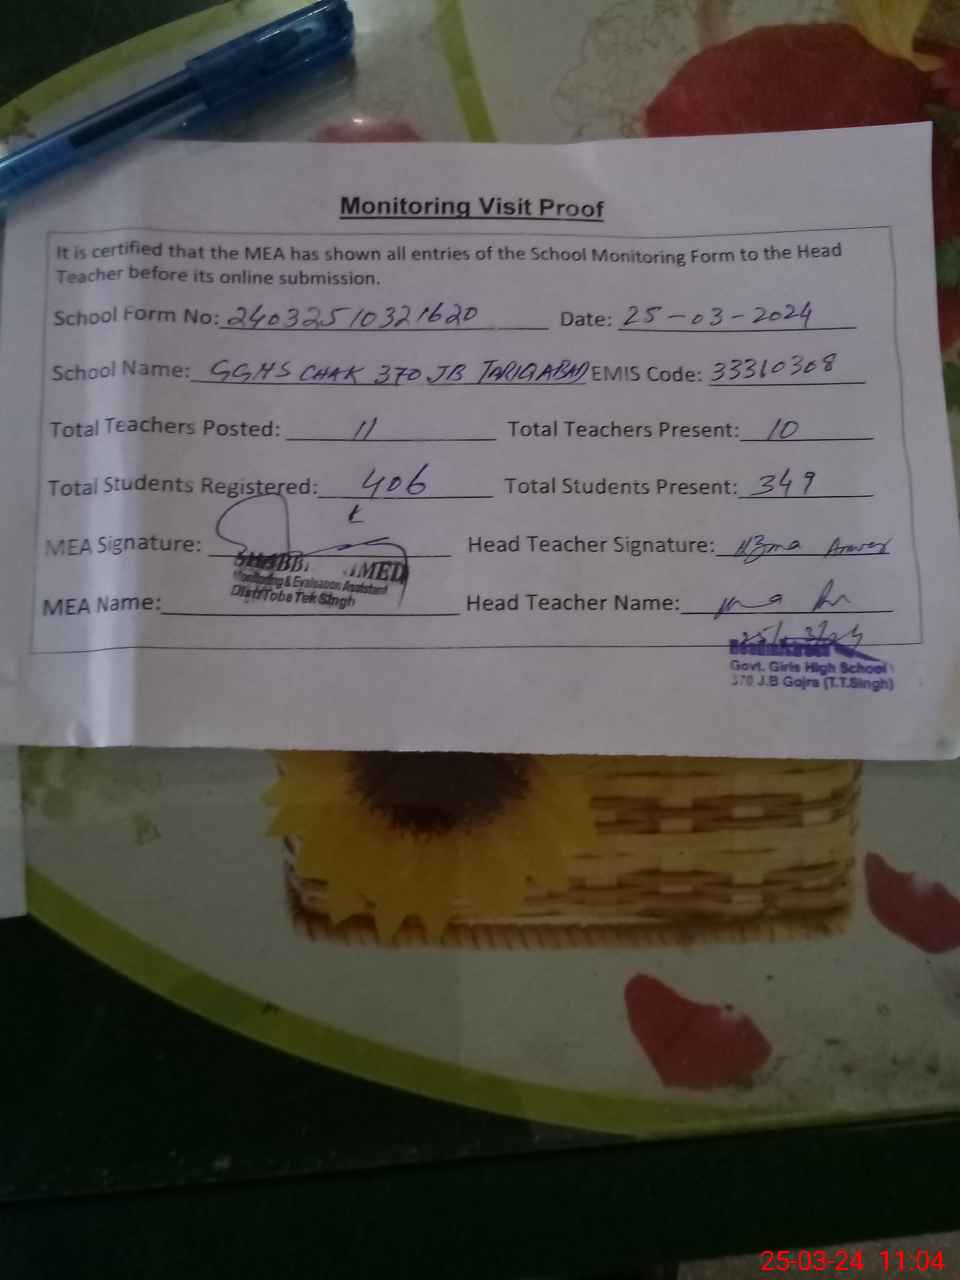 Monitoring Visit Proof
It is certified that the MEA has shown all entries of the School Monitoring Form to the Head
Teacher before its online submission.
School Form No: 24032510321620 Date: 25-03-2024
School Name: GGHS CHAK 370 JB TARIQABAD EMIS Code: 33310308
Total Teachers Posted: 11 Total Teachers Present: 10
Total Students Registered: 406 Total Students Present: 349
MEA Signature: Head Teacher Signature: Uzma Anwer
Monitoring & Evaluation Assistant
Distt Toba Tek Singh
MEA Name: Head Teacher Name:
Headmistress
Govt. Girls High School
370 J.B Gojra (T.T.Singh)
25-03-24 11:04